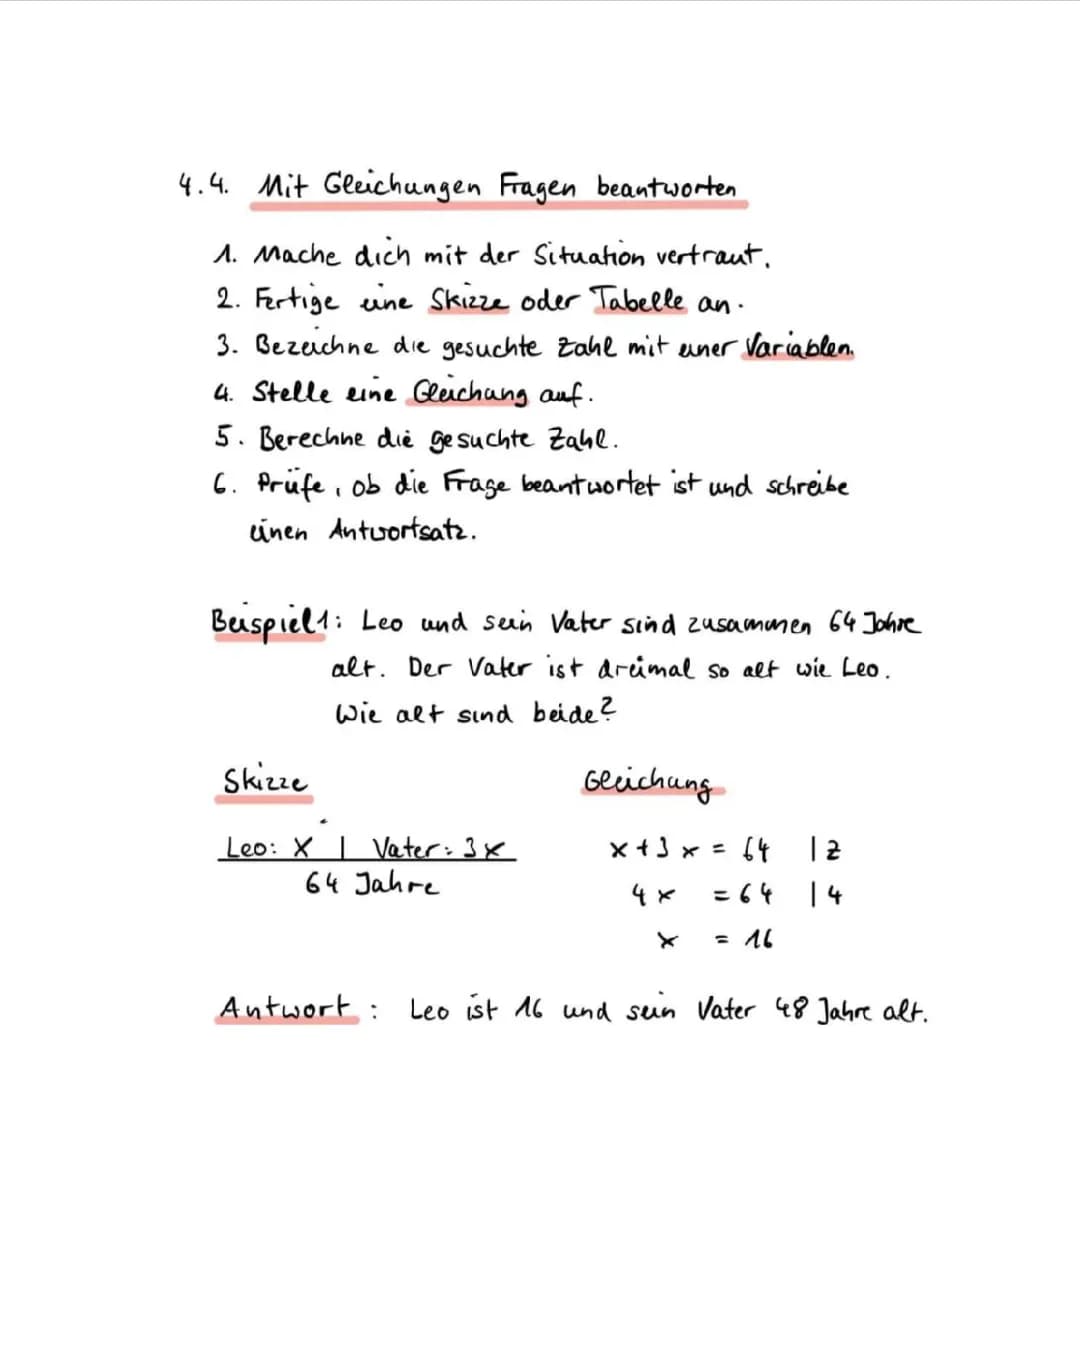 4.4. Mit Gleichungen Fragen beantworten
1. Mache dich mit der Situation vertraut.
2. Fertige eine Skizze oder Tabelle an.
3. Bezeichne die gesuchte Zahl mit einer Variablen.
4. Stelle eine Gleichung auf.
5. Berechne die gesuchte Zahl.
6. Prüfe, ob die Frage beantwortet ist und schreibe
einen Antwortsatz.
Beispiel 1: Leo und sein Vater sind zusammen 64 Jahre
alt. Der Vater ist dreimal so alt wie Leo.
Wie alt sind beide?
Skizze Gleichung
Leo: x | Vater: 3x x + 3x = 64 | Z
64 Jahre 4x = 64 | 4
x = 16
Antwort: Leo ist 16 und sein Vater 48 Jahre alt.